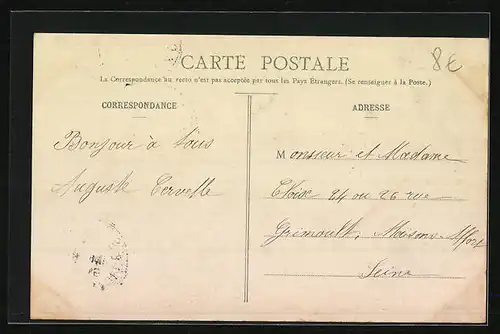 8€
CARTE POSTALE
La Correspondance au recto n'est pas acceptée par tous les Pays Étrangers. (Se renseigner à la Poste.)
CORRESPONDANCE
ADRESSE
Bonjour à tous
Auguste Cervelle
Monsieur et Madame
24 ou 26 rue
Grimoult, Maisons Alfort
Seine